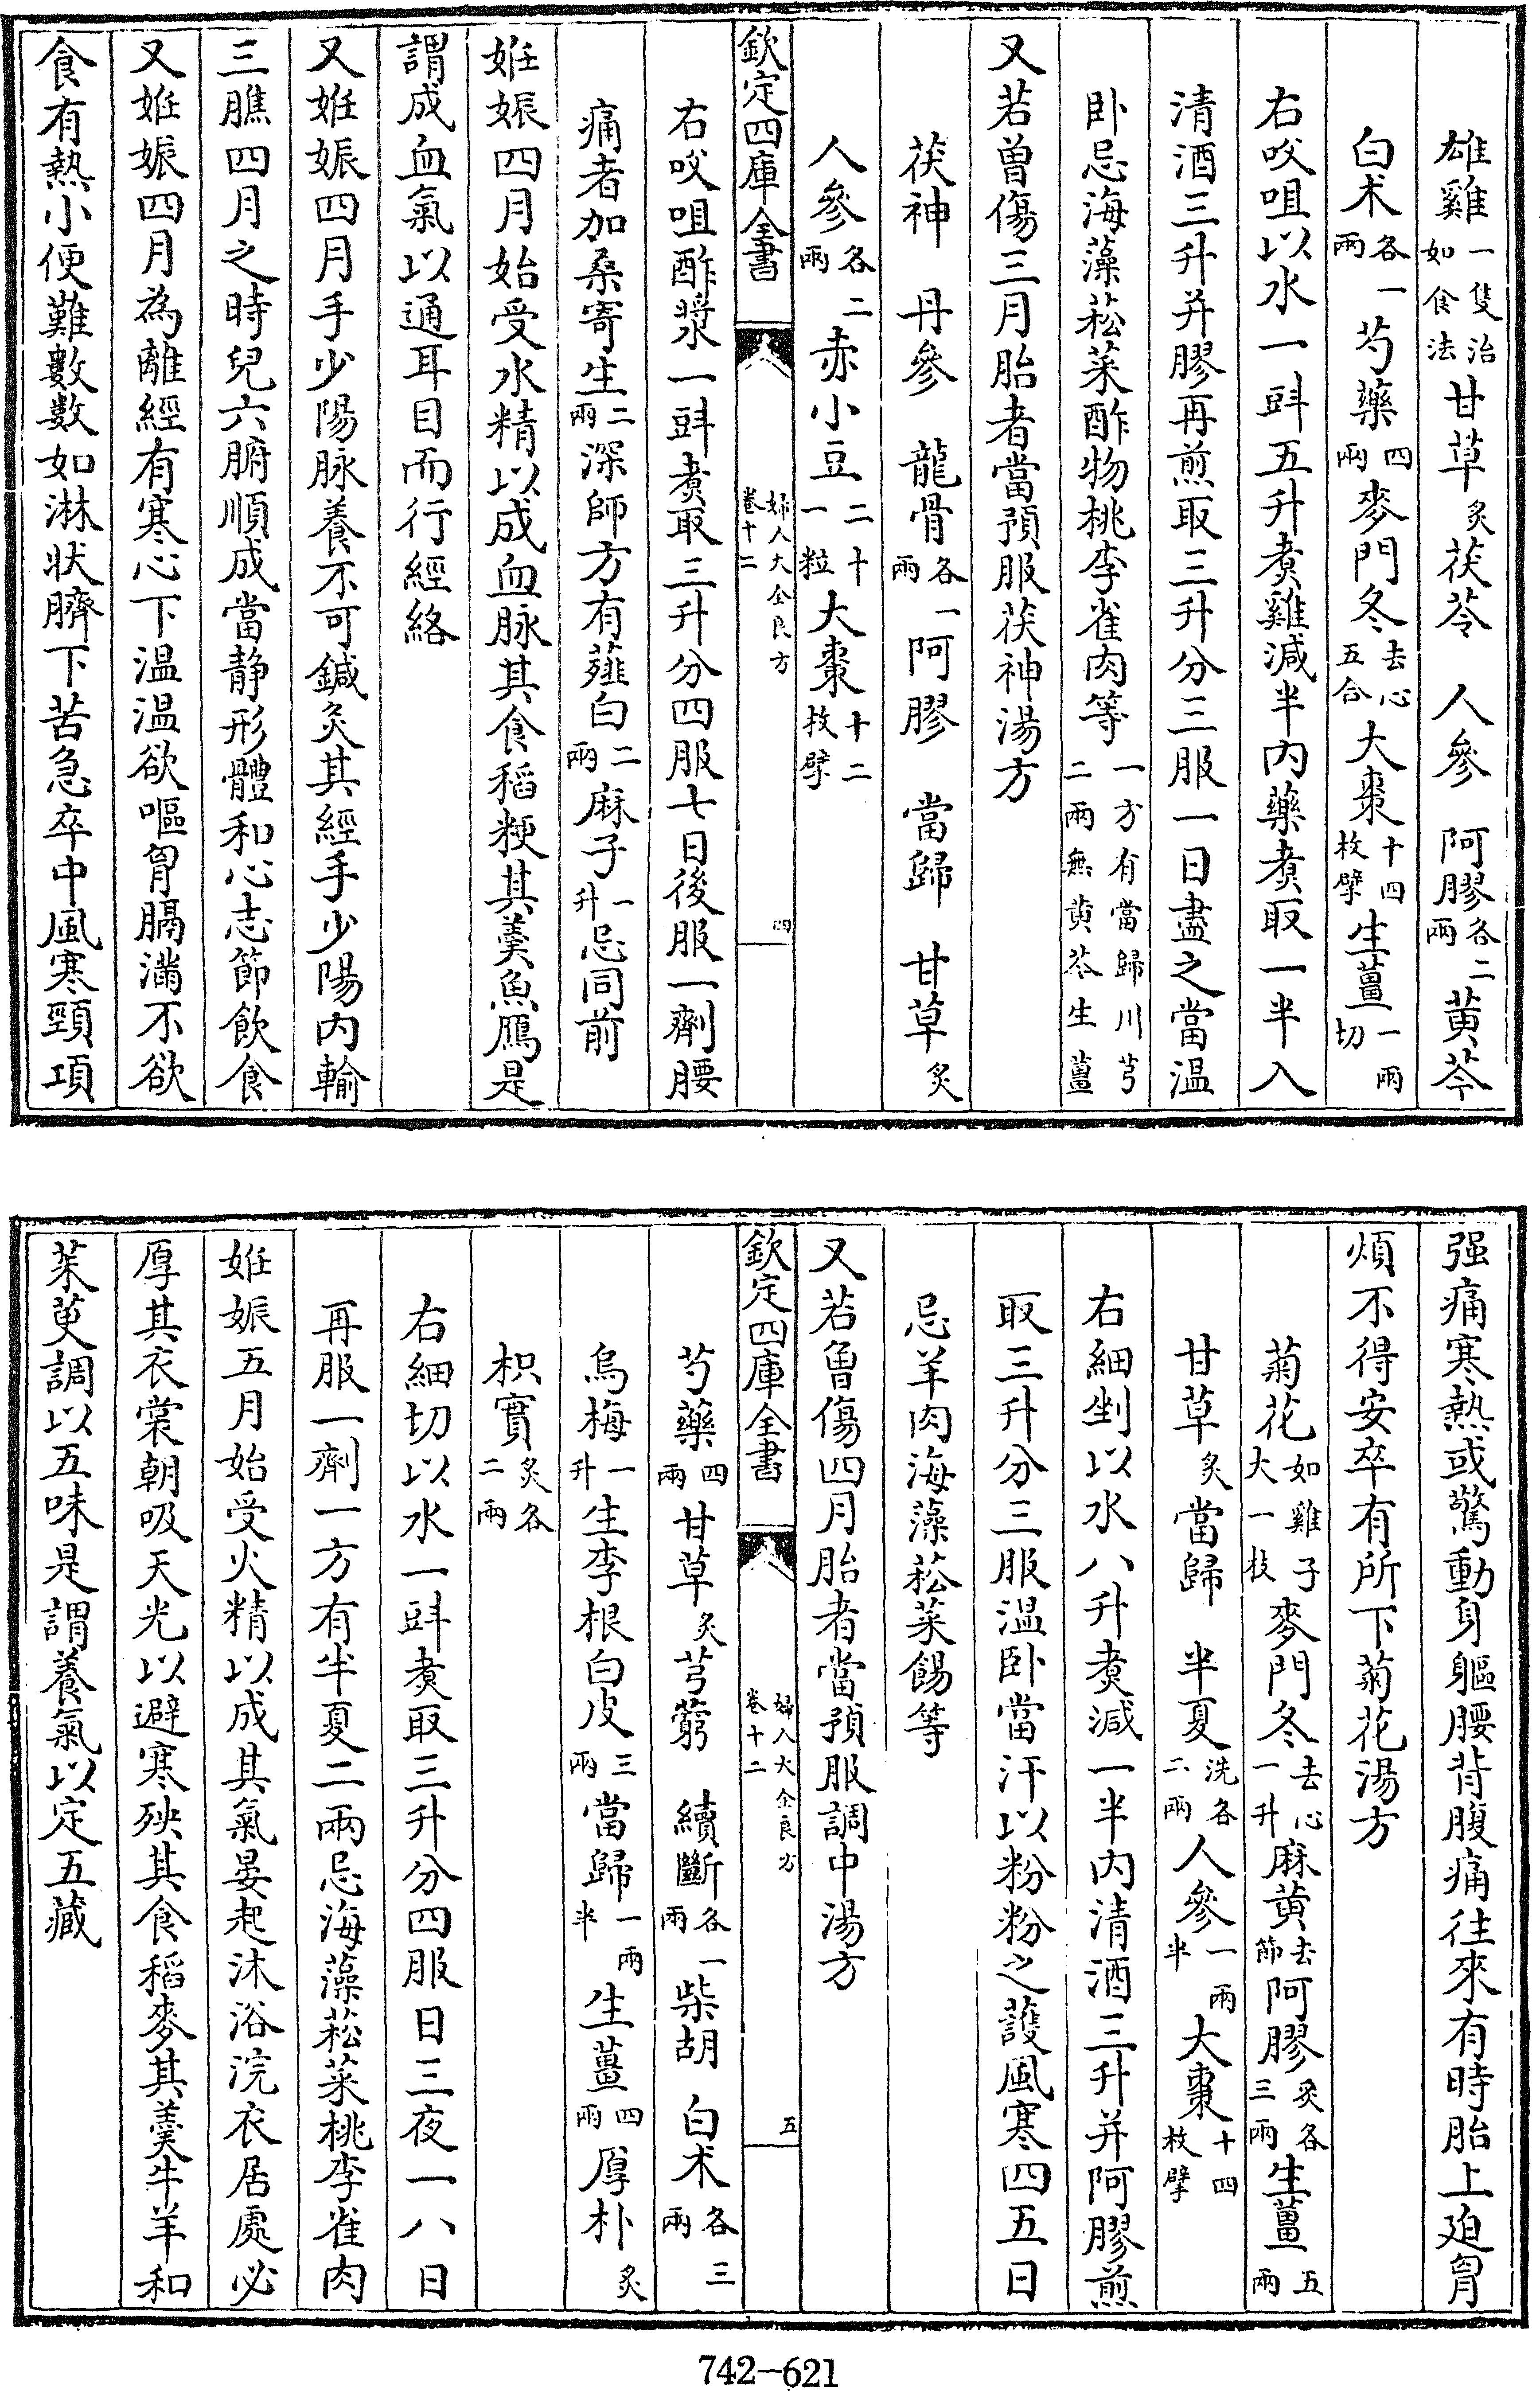 雄雞一隻治如食法甘草炙茯苓　人參　阿膠各二兩黄芩
白术各一兩芍藥四兩麥門冬去心五合大棗十四枚擘生薑一兩切
右㕮咀以水一㪷五升煮雞減半内藥煮取一半入
清酒三升并膠再煎取三升分三服一日盡之當温
卧忌海藻菘菜酢物桃李雀肉等一方有當歸川芎二兩無黄芩生薑
又若曾傷三月胎者當預服茯神湯方
茯神　丹參　龍骨各一兩阿膠　當歸　甘草炙
人參各二兩赤小豆二十一粒大棗十二枚擘
欽定四庫全書　婦人大全良方卷十二　四
右㕮咀酢漿一㪷煮取三升分四服七日後服一劑腰
痛者加桑寄生二兩深師方有薤白二兩麻子一升忌同前
姙娠四月始受水精以成血脉其食稻粳其羹魚鴈是
謂成血氣以通耳目而行經絡
又姙娠四月手少陽脉養不可鍼灸其經手少陽内輸
三膲四月之時兒六腑順成當静形體和心志節飲食
又姙娠四月為離經有寒心下温温欲嘔胷膈滿不欲
食有熱小便難數數如淋状臍下苦急卒中風寒頸項
强痛寒熱或驚動身軀腰背腹痛往來有時胎上廹胷
煩不得安卒有所下菊花湯方
菊花如雞子大一枚麥門冬去心一升麻黄去節阿膠炙各三兩生薑五兩
甘草炙當歸　半夏洗各二兩人參一兩半大棗十四枚擘
右細剉以水八升煮減一半内清酒三升并阿膠煎
取三升分三服温卧當汗以粉粉之護風寒四五日
忌羊肉海藻菘菜餳等
又若曾傷四月胎者當預服調中湯方
欽定四庫全書　婦人大全良方卷十二　五
芍藥四兩甘草炙芎藭　續斷各一兩柴胡　白术各三兩
烏梅一升生李根白皮三兩當歸一兩半生薑四兩厚朴炙
枳實炙各二兩
右細切以水一㪷煮取三升分四服日三夜一八日
再服一劑一方有半夏二兩忌海藻菘菜桃李雀肉
姙娠五月始受火精以成其氣晏起沐浴浣衣居處必
厚其衣裳朝吸天光以避寒殃其食稻麥其羹牛羊和
茱萸調以五味是謂養氣以定五藏
742-621